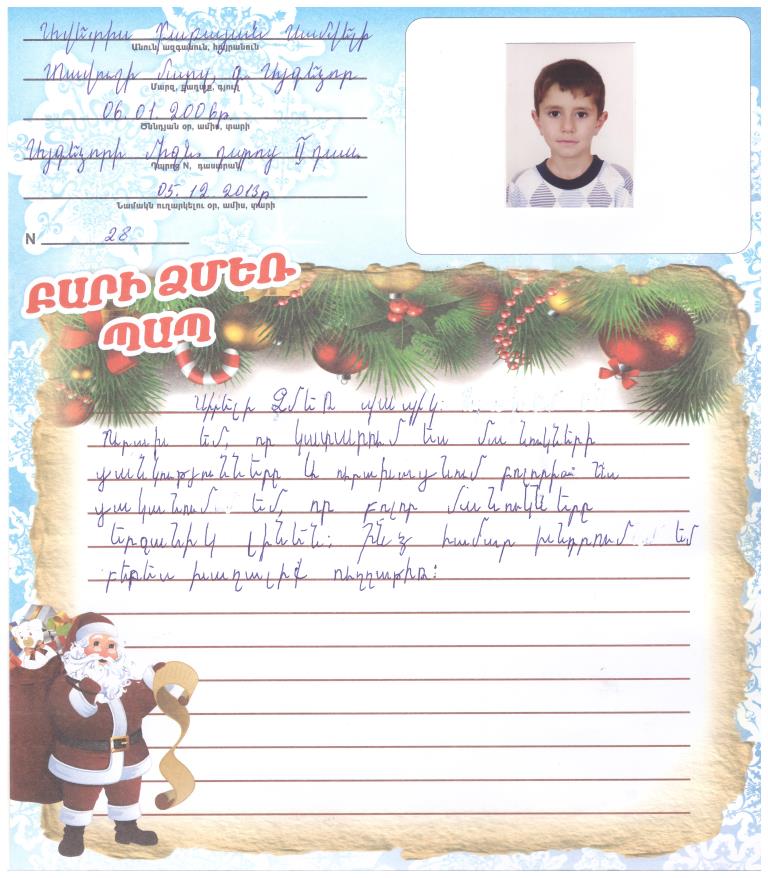 Ավետիս Բաբայան Սամվելի
Անուն, ազգանուն, հայրանուն
Տավուշի մարզ, գ. Այգեձոր
Մարզ, քաղաք, գյուղ
06.01.2006թ.
Ծննդյան օր, ամիս, տարի
Այգեձորի միջն. դպրոց II դաս.
Դպրոց N, դասարան
05.12.2013թ
Նամակն ուղարկելու օր, ամիս, տարի
N 28
ԲԱՐԻ ՁՄԵՌ
ՊԱՊ
Սիրելի Ձմեռ պապիկ:
Ուրախ եմ, որ կատարում ես մանուկների
ցանկությունները և ուրախացնում բոլորին: Ես
ցանկանում եմ, որ բոլոր մանուկները
երջանիկ լինեն: Ինձ համար խնդրում եմ
բերես խաղալիք ուղղաթիռ: